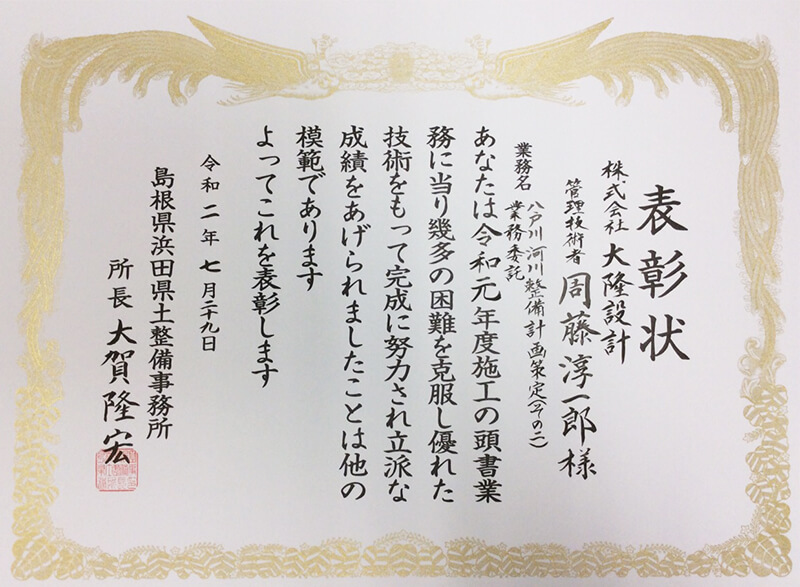 表彰状
株式会社 大隆設計
管理技術者 周藤淳一郎様
業務名 八戸川 河川整備計画策定(その二)
業務委託
あなたは令和元年度施工の頭書業
務に当り幾多の困難を克服し優れた
技術をもって完成に努力され立派な
成績をあげられましたことは他の
模範であります
よってこれを表彰します
令和二年七月二十九日
島根県浜田県土整備事務所
所長 大賀隆宏